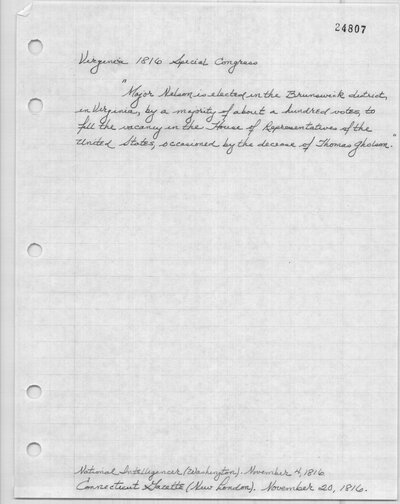 24807
Virginia 1816 Special Congress
"Major Nelson is elected in the Brunswick district,
in Virginia, by a majority of about a hundred votes, to
fill the vacancy in the House of Representatives of the
United States, occasioned by the decease of Thomas Gholson."
National Intelligencer (Washington). November 4, 1816.
Connecticut Gazette (New London). November 20, 1816.